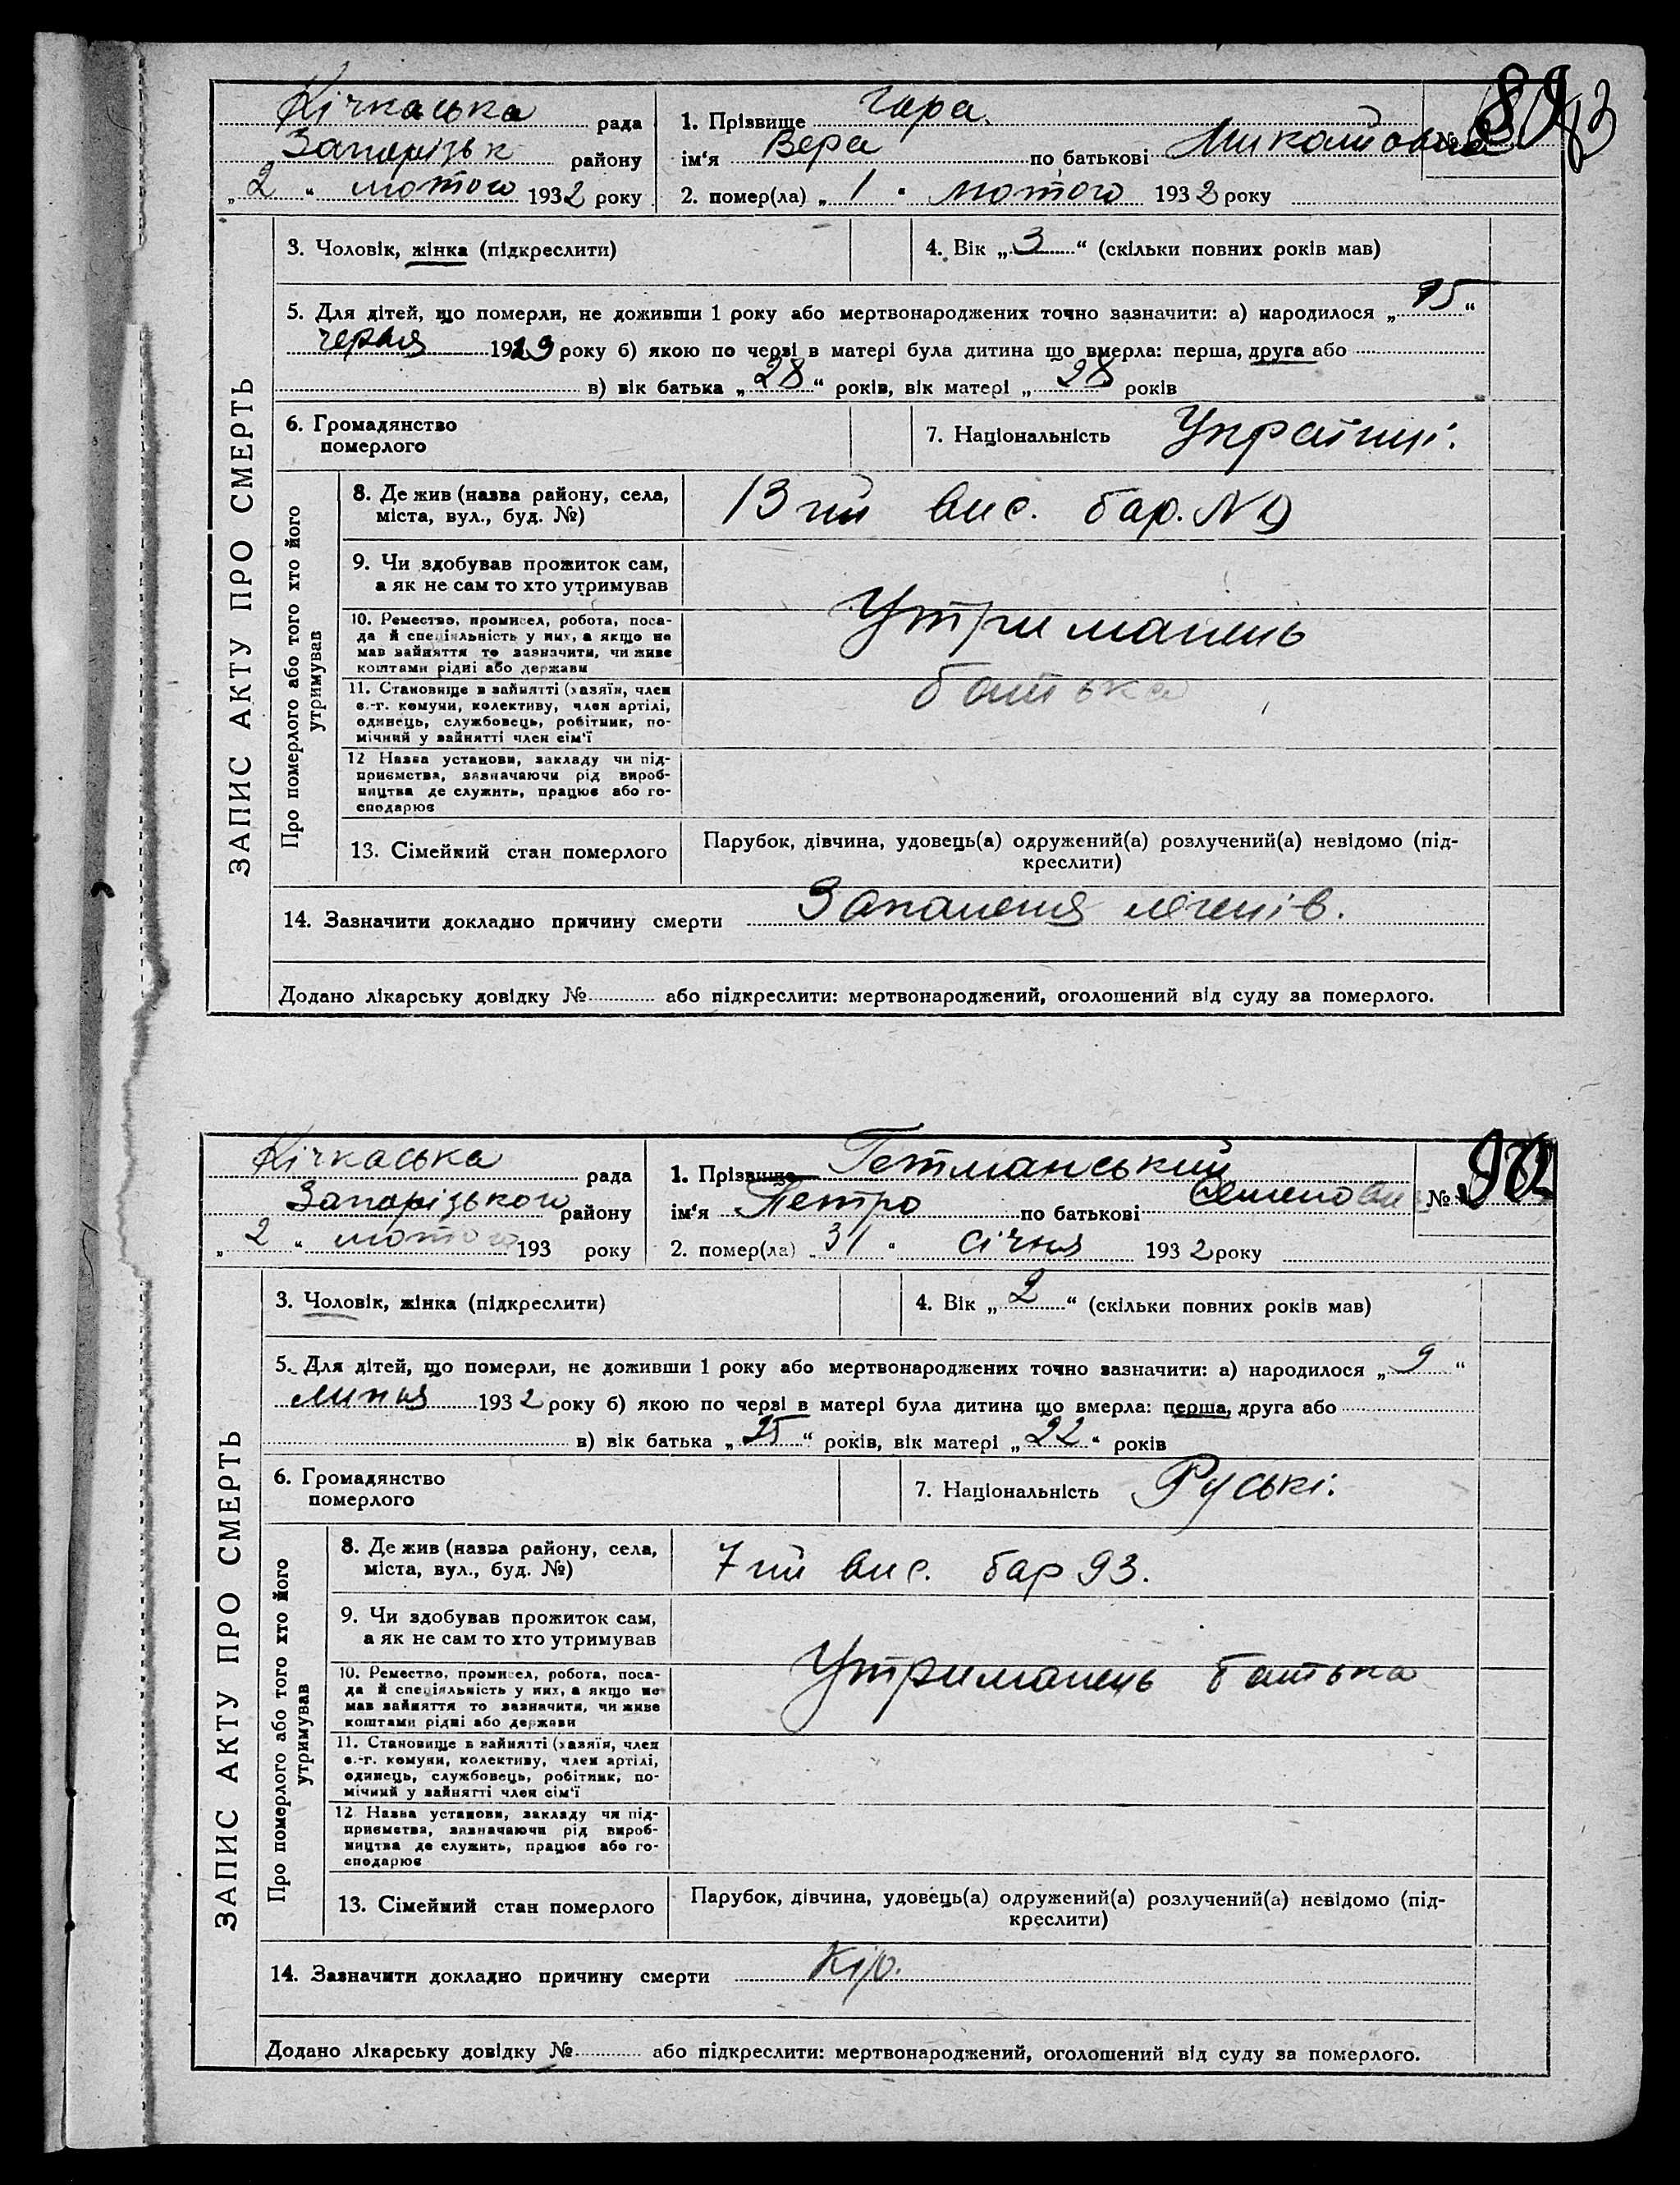 Кічкаська рада
Запорізьк району
„2“ лютого 1932 року
1. Прізвище Гора
ім‘я Вера по батькові Миколаївна
2. помер(ла) „1“ лютого 1932 року
№ 89
3. Чоловік, жінка (підкреслити)
4. Вік „3“ (скільки повних років мав)
5. Для дітей, що померли, не доживши 1 року або мертвонароджених точно зазначити: а) народилося „15“
червня 1929 року б) якою по черві в матері була дитина що вмерла: перша, друга або
в) вік батька „28“ років, вік матері „28 років
6. Громадянство
померлого
7. Національність Українці.
ЗАПИС АКТУ ПРО СМЕРТЬ
Про померлого або того хто його
утримував
8. Де жив (назва району, села,
міста, вул., буд. №)
13 ий вис. бар. N 9
9. Чи здобував прожиток сам,
а як не сам то хто утримував
10. Ремество, промисел, робота, поса-
да й спеціяльність у них, а якщо не
мав зайняття то зазначити, чи живе
коштами рідні або держави
Утриманець
11. Становище в зайнятті (хазяїн, член
с.-г. комуни, колективу, член артілі,
одинець, службовець, робітник, по-
мічний у зайнятті член сім‘ї
батька
12 Назва установи, закладу чи під-
приємства, зазначаючи рід вироб-
ництва де служить, працює або го-
сподарює
13. Сімейний стан померлого
Парубок, дівчина, удовець(а) одружений(а) розлучений(а) невідомо (під-
креслити)
14. Зазначити докладно причину смерти Запаленя легенів.
Додано лікарську довідку № або підкреслити: мертвонароджений, оголошений від суду за померлого.
Кічкаська рада
Запорізького району
„2“ лютого 193 року
1. Прізвище Гетманський
ім‘я Петро по батькові Семенович
2. помер(ла) „31“ січня 1932 року
№ 90
3. Чоловік, жінка (підкреслити)
4. Вік „2“ (скільки повних років мав)
5. Для дітей, що померли, не доживши 1 року або мертвонароджених точно зазначити: а) народилося „9“
липня 1932 року б) якою по черві в матері була дитина що вмерла: перша, друга або
в) вік батька „25“ років, вік матері „22“ років
6. Громадянство
померлого
7. Національність Руські.
ЗАПИС АКТУ ПРО СМЕРТЬ
Про померлого або того хто його
утримував
8. Де жив (назва району, села,
міста, вул., буд. №)
7 ий вис. бар 93.
9. Чи здобував прожиток сам,
а як не сам то хто утримував
10. Ремество, промисел, робота, поса-
да й спеціяльність у них, а якщо не
мав зайняття то зазначити, чи живе
коштами рідні або держави
Утриманець батька
11. Становище в зайнятті (хазяїн, член
с.-г. комуни, колективу, член артілі,
одинець, службовець, робітник, по-
мічний у зайнятті член сім‘ї
12 Назва установи, закладу чи під-
приємства, зазначаючи рід вироб-
ництва де служить, працює або го-
сподарює
13. Сімейний стан померлого
Парубок, дівчина, удовець(а) одружений(а) розлучений(а) невідомо (під-
креслити)
14. Зазначити докладно причину смерти Кір.
Додано лікарську довідку № або підкреслити: мертвонароджений, оголошений від суду за померлого.